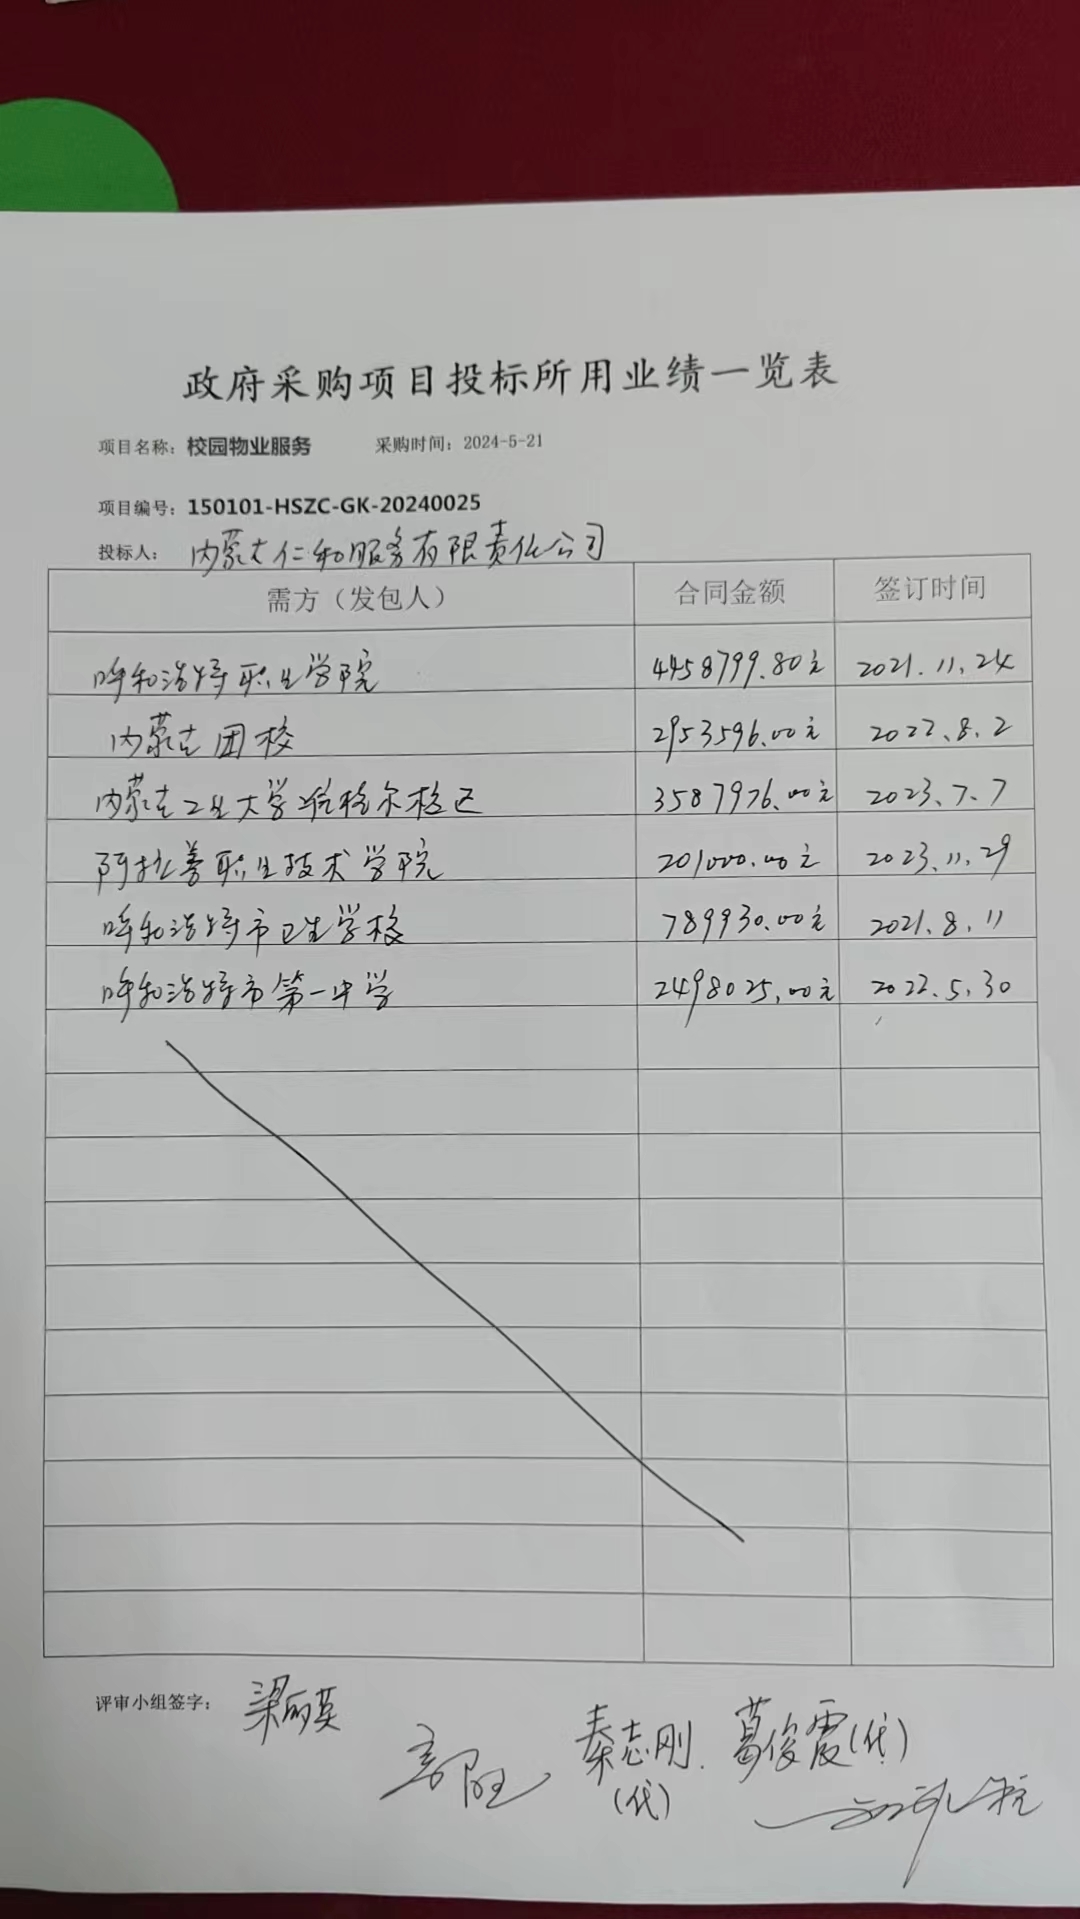 政府采购项目投标所用业绩一览表
项目名称：校园物业服务 采购时间：2024-5-21
项目编号：150101-HSZC-GK-20240025
投标人：内蒙古仁和服务有限责任公司
需方（发包人） 合同金额 签订时间
呼和浩特职业学院 4458799.80元 2021.11.24
内蒙古团校 2953596.00元 2022.8.2
内蒙古工业大学准格尔校区 3587976.00元 2023.7.7
阿拉善职业技术学院 201000.00元 2023.11.29
呼和浩特市卫生学校 789930.00元 2021.8.11
呼和浩特市第一中学 2498025.00元 2022.5.30
评审小组签字：梁丽英
秦志刚.（代） 葛俊霞（代）